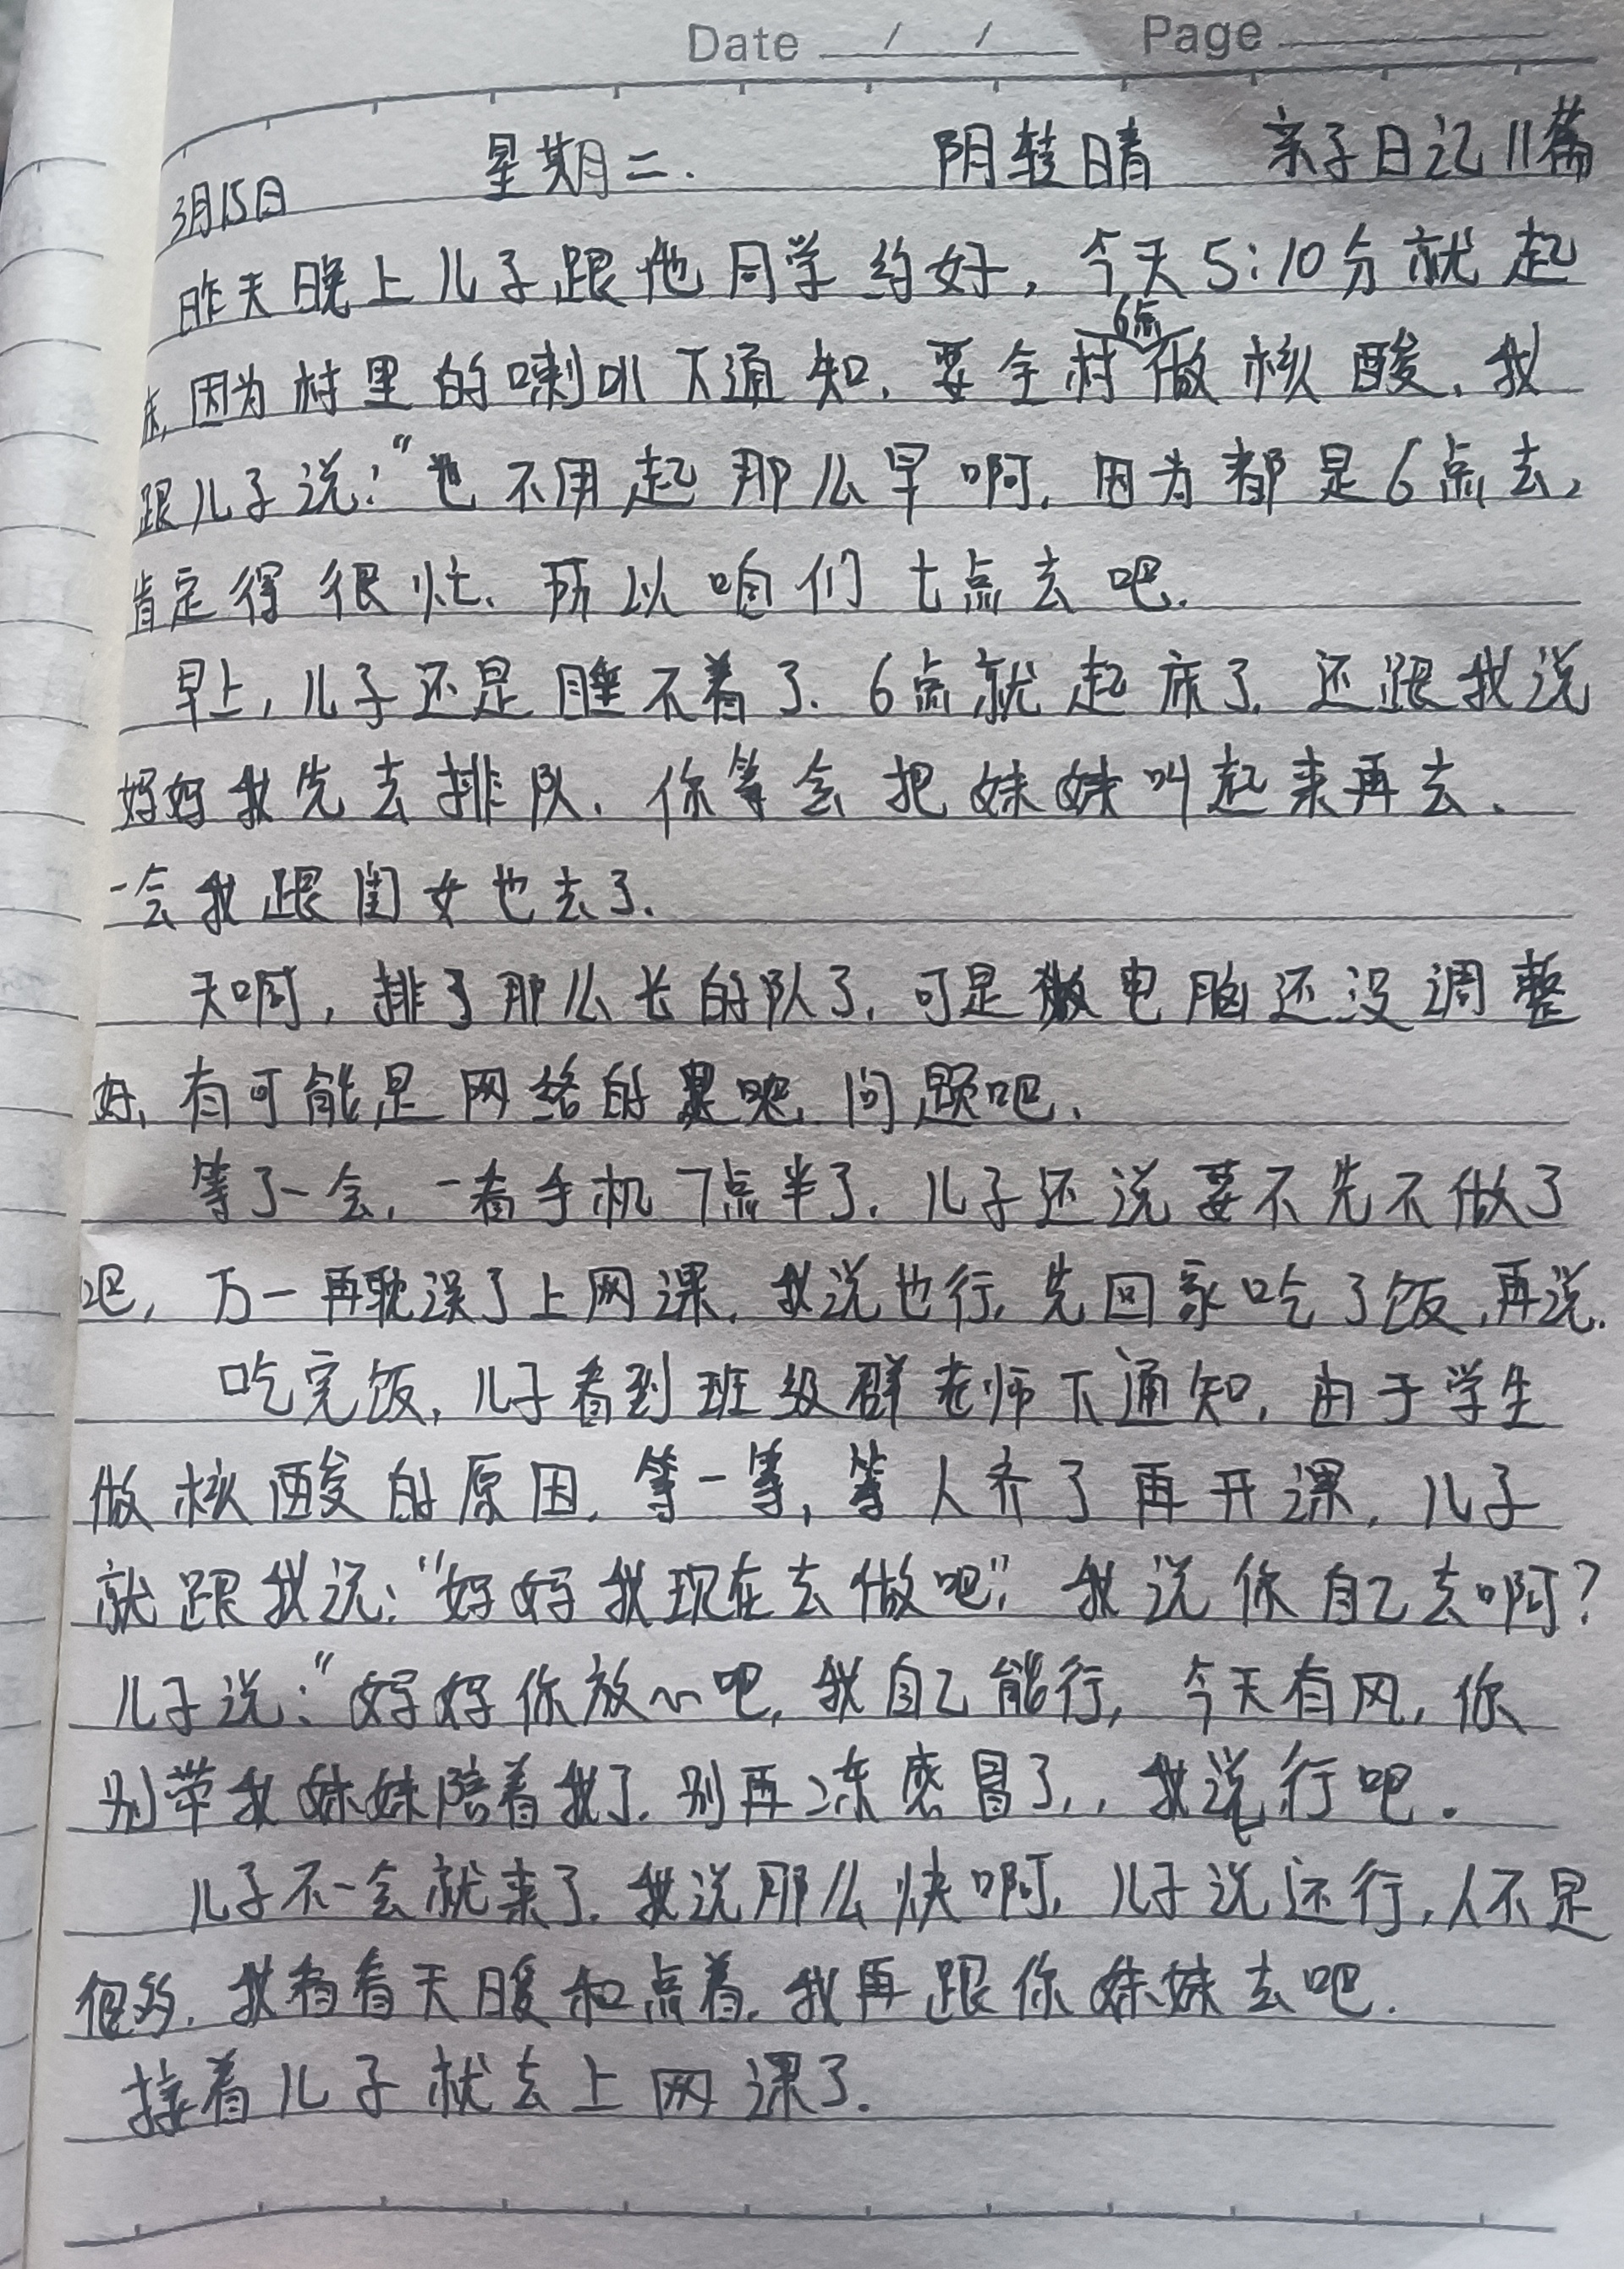 Date / / Page
3月15日 星期二. 阴转晴 亲子日记11篇
昨天晚上儿子跟他同学约好，今天5:10分就起
床，因为村里的喇叭下通知，要全村6点做核酸，我
跟儿子说：“也不用起那么早啊，因为都是6点去，
肯定得很忙、所以咱们七点去吧.
早上，儿子还是睡不着了.6点就起床了，还跟我说
妈妈我先去排队，你等会把妹妹叫起来再去、
一会我跟闺女也去了.
天啊，排了那么长的队了，可是微电脑还没调整
好，有可能是网络的 问题吧、
等了一会，一看手机7点半了，儿子还说要不先不做了
吧，万一再耽误了上网课，我说也行，先回家吃了饭，再说.
吃完饭，儿子看到班级群老师下通知，由于学生
做核酸的原因，等一等，等人齐了再开课，儿子
就跟我说：“妈妈我现在去做吧”，我说你自己去啊？
儿子说：“妈妈你放心吧，我自己能行，今天有风，你
别带我妹妹陪着我了，别再冻感冒了，，我说行吧.
儿子不一会就来了，我说那么快啊，儿子说还行，人不是
很多，我看看天暖和点着，我再跟你妹妹去吧.
接着儿子就去上网课了.